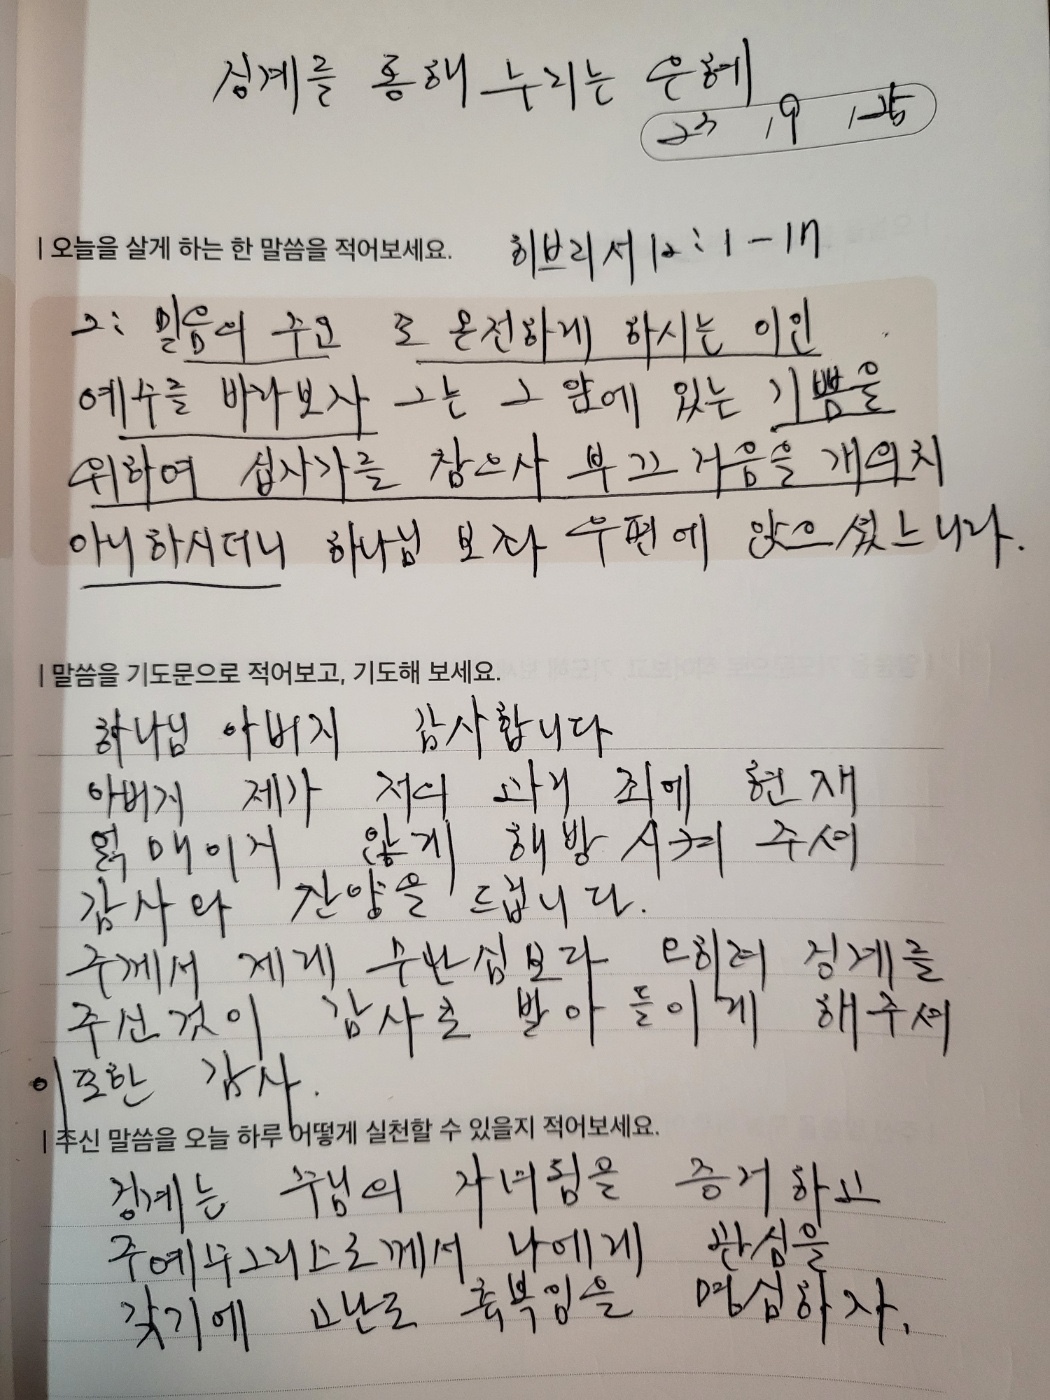 징계를 통해 누리는 은혜
23, 9, 25
| 오늘을 살게 하는 한 말씀을 적어보세요. 히브리서 12:1-17
2: 믿음의 주요 또 온전하게 하시는 이인
예수를 바라보자 그는 그 앞에 있는 기쁨을
위하여 십자가를 참으사 부끄러움을 개의치
아니하시더니 하나님 보좌 우편에 앉으셨느니라.
| 말씀을 기도문으로 적어보고, 기도해 보세요.
하나님 아버지 감사합니다
아버지 제가 저의 과거 죄에 현재
얽매이지 않게 해방 시켜 주셔
감사와 찬양을 드립니다.
주께서 제게 무관심보다 오히려 징계를
주신것이 감사로 받아 들이게 해주셔
이 또한 감사.
| 주신 말씀을 오늘 하루 어떻게 실천할 수 있을지 적어보세요.
징계는 주님의 자녀됨을 증거하고
주예수그리스도께서 나에게 관심을
갖기에 고난도 축복임을 명심하자.